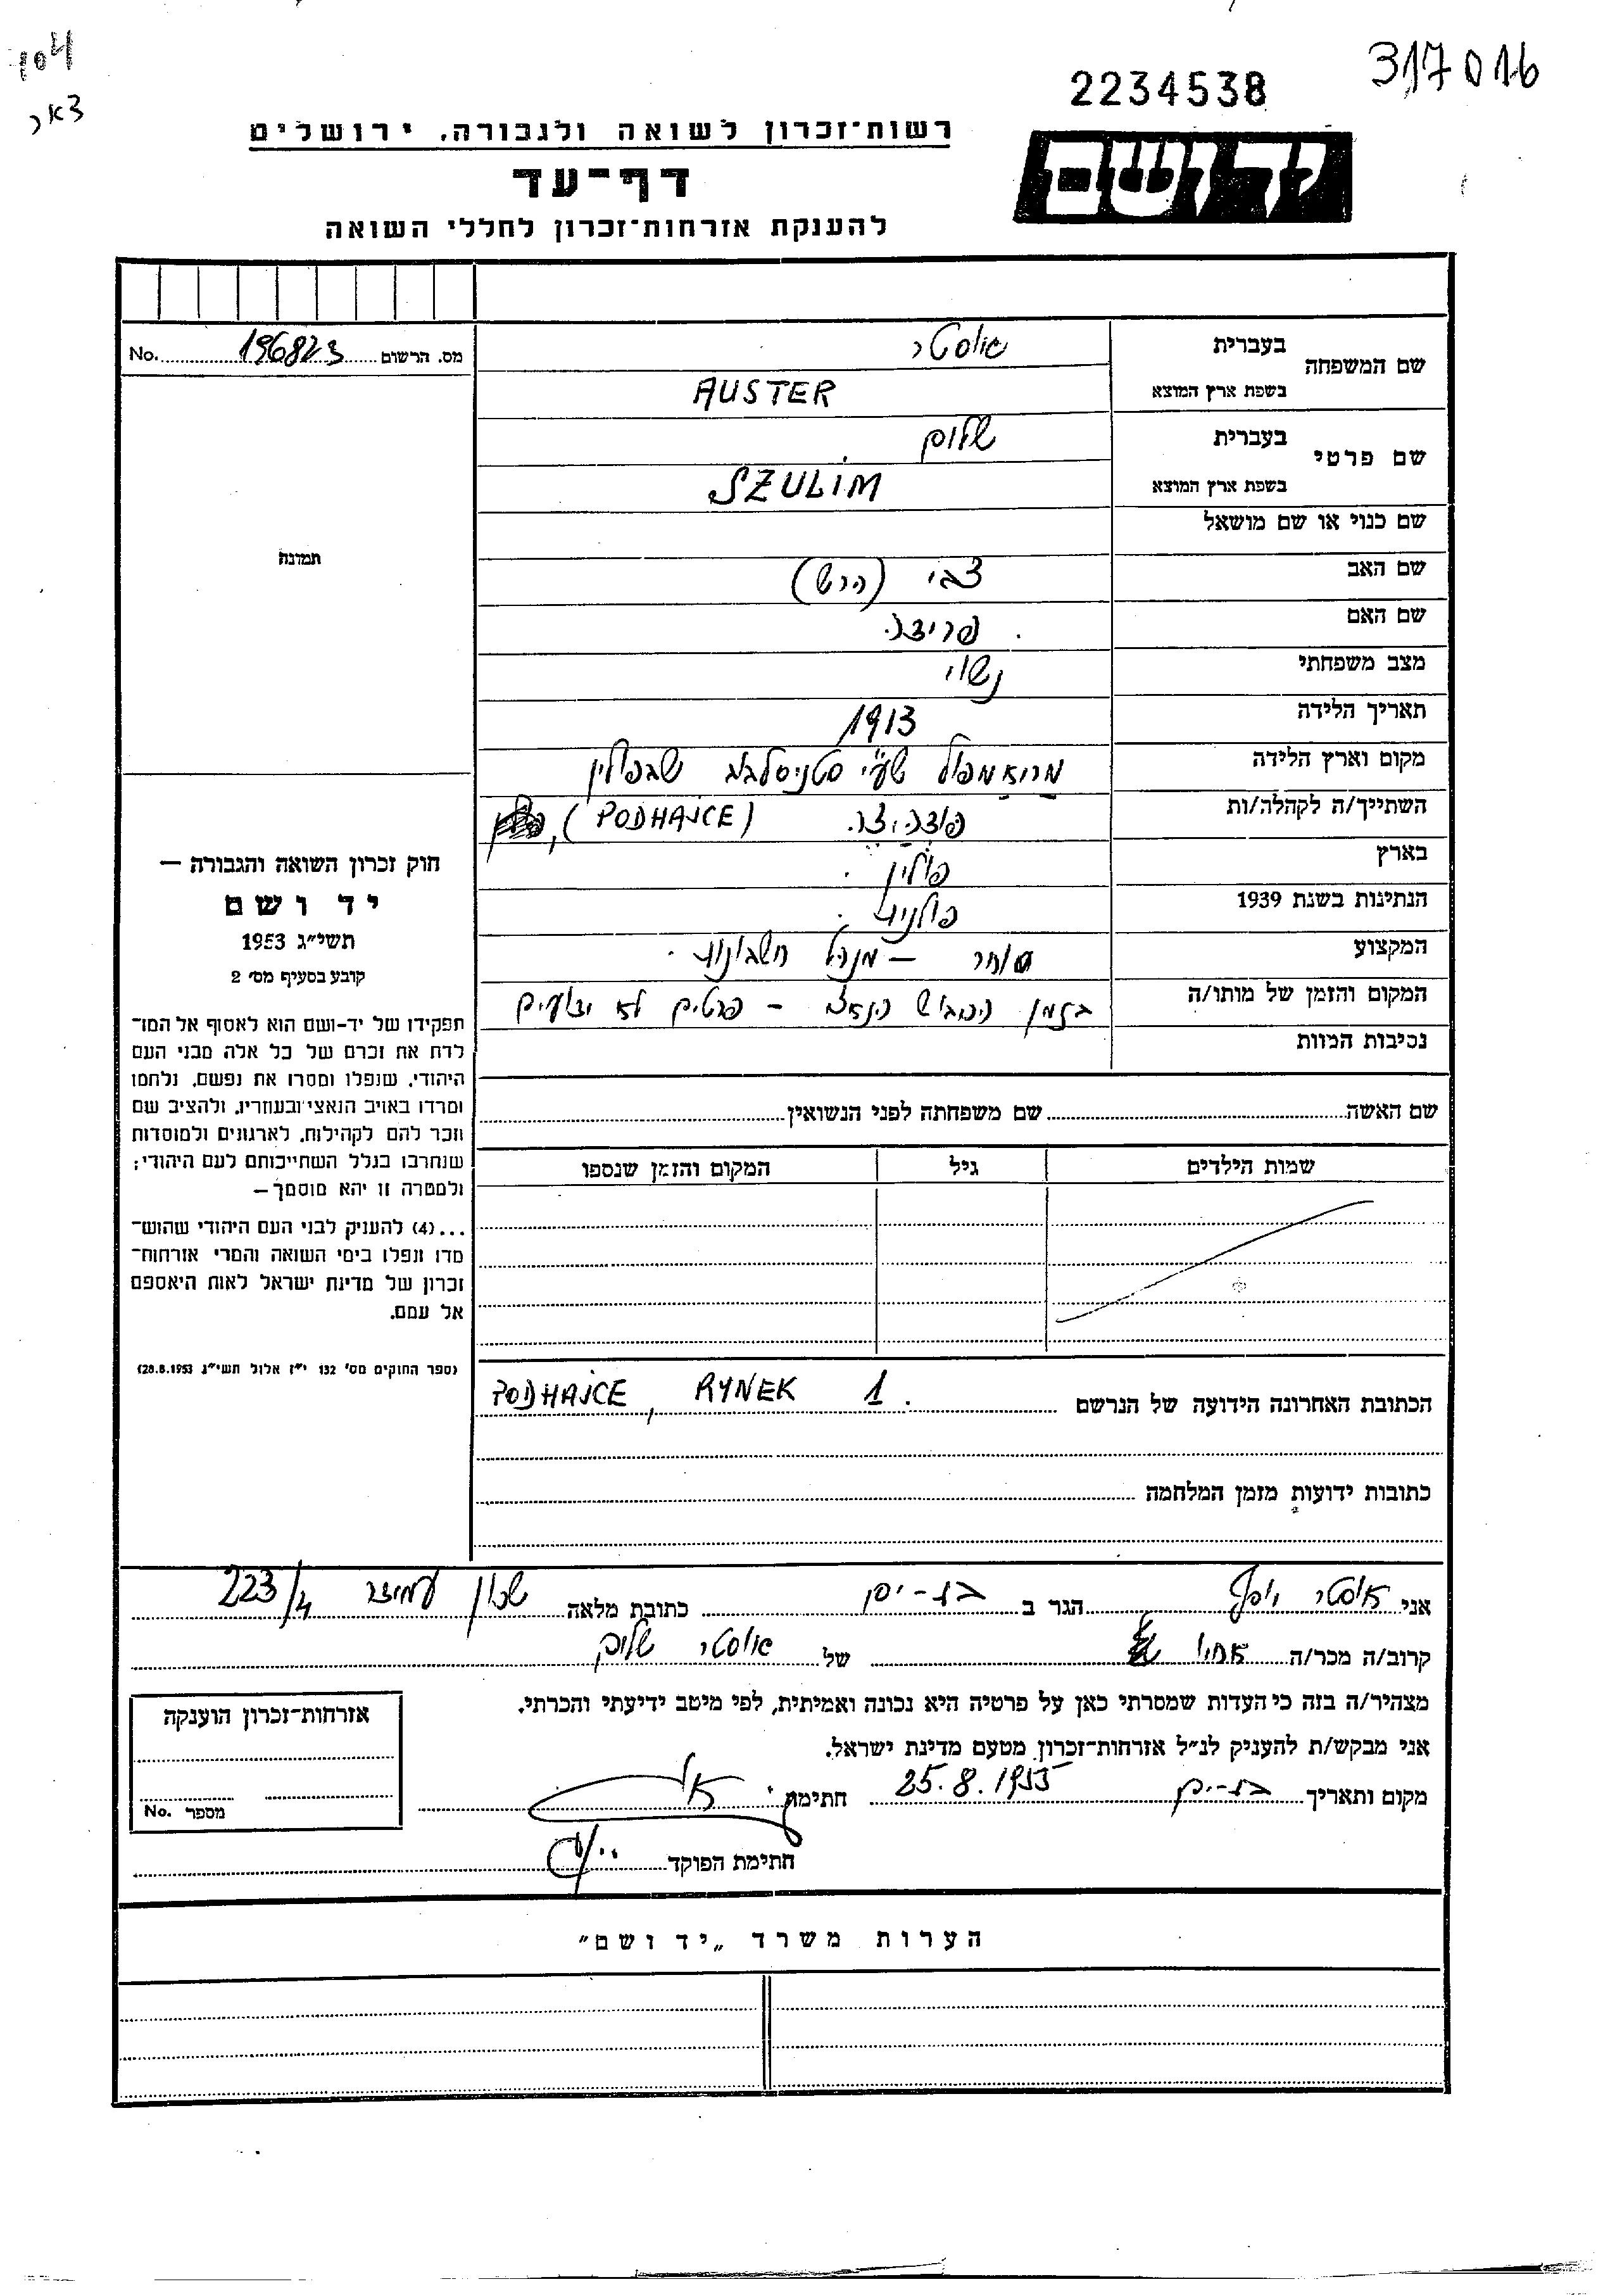 317016
2234538
104
צאר
ידושם
רשות־זכרון לשואה ולגבורה, ירושלים
דף־עד
להענקת אזרחות־זכרון לחללי השואה
מס. הרשום 196823 No.
שם המשפחה בעברית אוסטר
בשפת ארץ המוצא AUSTER
שם פרטי בעברית שלום
בשפת ארץ המוצא SZULIM
שם כנוי או שם מושאל
שם האב צבי (הרש)
שם האם פריצה
מצב משפחתי נשוי
תאריך הלידה 1913
מקום וארץ הלידה מריאמפול שע"י סטניסלבוב שבפולין
השתייך/ה לקהלה/ות (PODHAJCE)
בארץ פולין
הנתינות בשנת 1939 פולנית
המקצוע סוחר – מנהל חשבונות
המקום והזמן של מותו/ה בזמן הכבוש הנאצי – פרטים לא ידועים
נסיבות המות
תמונה
חוק זכרון השואה והגבורה –
יד ושם
תשי״ג 1953
קובע בסעיף מס׳ 2
תפקידו של יד-ושם הוא לאסוף אל המו־
לדת את זכרם של כל אלה מבני העם
היהודי, שנפלו ומסרו את נפשם, נלחמו
ומרדו באויב הנאצי ובעוזריו, ולהציב שם
וזכר להם לקהילות, לארגונים ולמוסדות
שנחרבו בגלל השתייכותם לעם היהודי;
ולמטרה זו יהא מוסמך–
...(4) להעניק לבני העם היהודי שהוש־
מדו ונפלו בימי השואה והמרי אזרחות־
זכרון של מדינת ישראל לאות היאספם
אל עמם.
(ספר החוקים מס׳ 132 י״ז אלול תשי״ג 28.8.1953)
שם האשה שם משפחתה לפני הנשואין
שמות הילדים גיל המקום והזמן שנספו
הכתובת האחרונה הידועה של הנרשם PODHAJCE, RYNEK 1.
כתובות ידועות מזמן המלחמה
אני אוסטר יוסף הגר ב בת-ים כתובת מלאה שכון עמידר 223/4
קרוב/ה מכר/ה אחיו של אוסטר שלום
מצהיר/ה בזה כי העדות שמסרתי כאן על פרטיה היא נכונה ואמיתית, לפי מיטב ידיעתי והכרתי.
אני מבקש/ת להעניק לנ״ל אזרחות־זכרון מטעם מדינת ישראל.
מקום ותאריך בת-ים 25.8.1955 חתימת
חתימת הפוקד
אזרחות־זכרון הוענקה
מספר No.
הערות משרד „יד ושם״